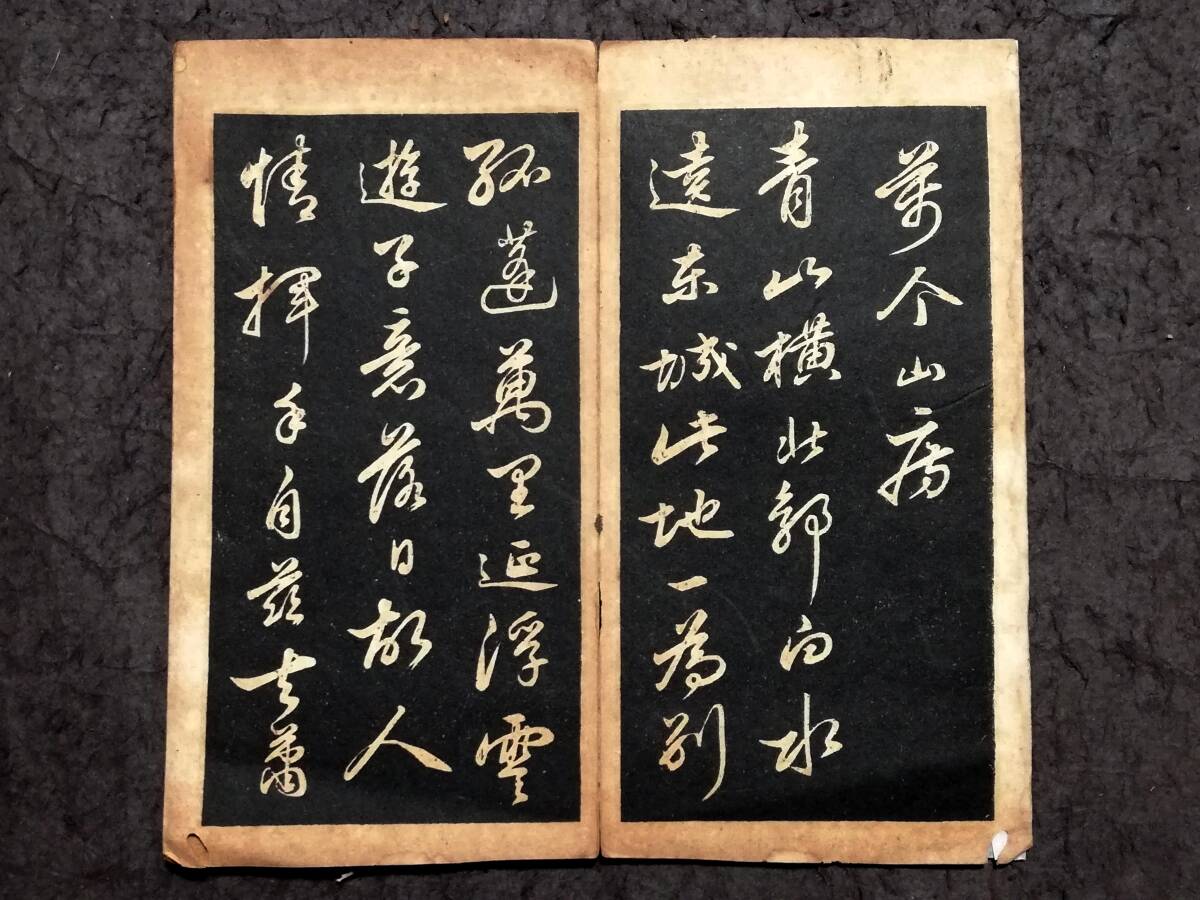 萬个山房
青山橫北郭白水
遶東城此地一為別
孤蓬萬里征浮雲
遊子意落日故人
情揮手自茲去蕭